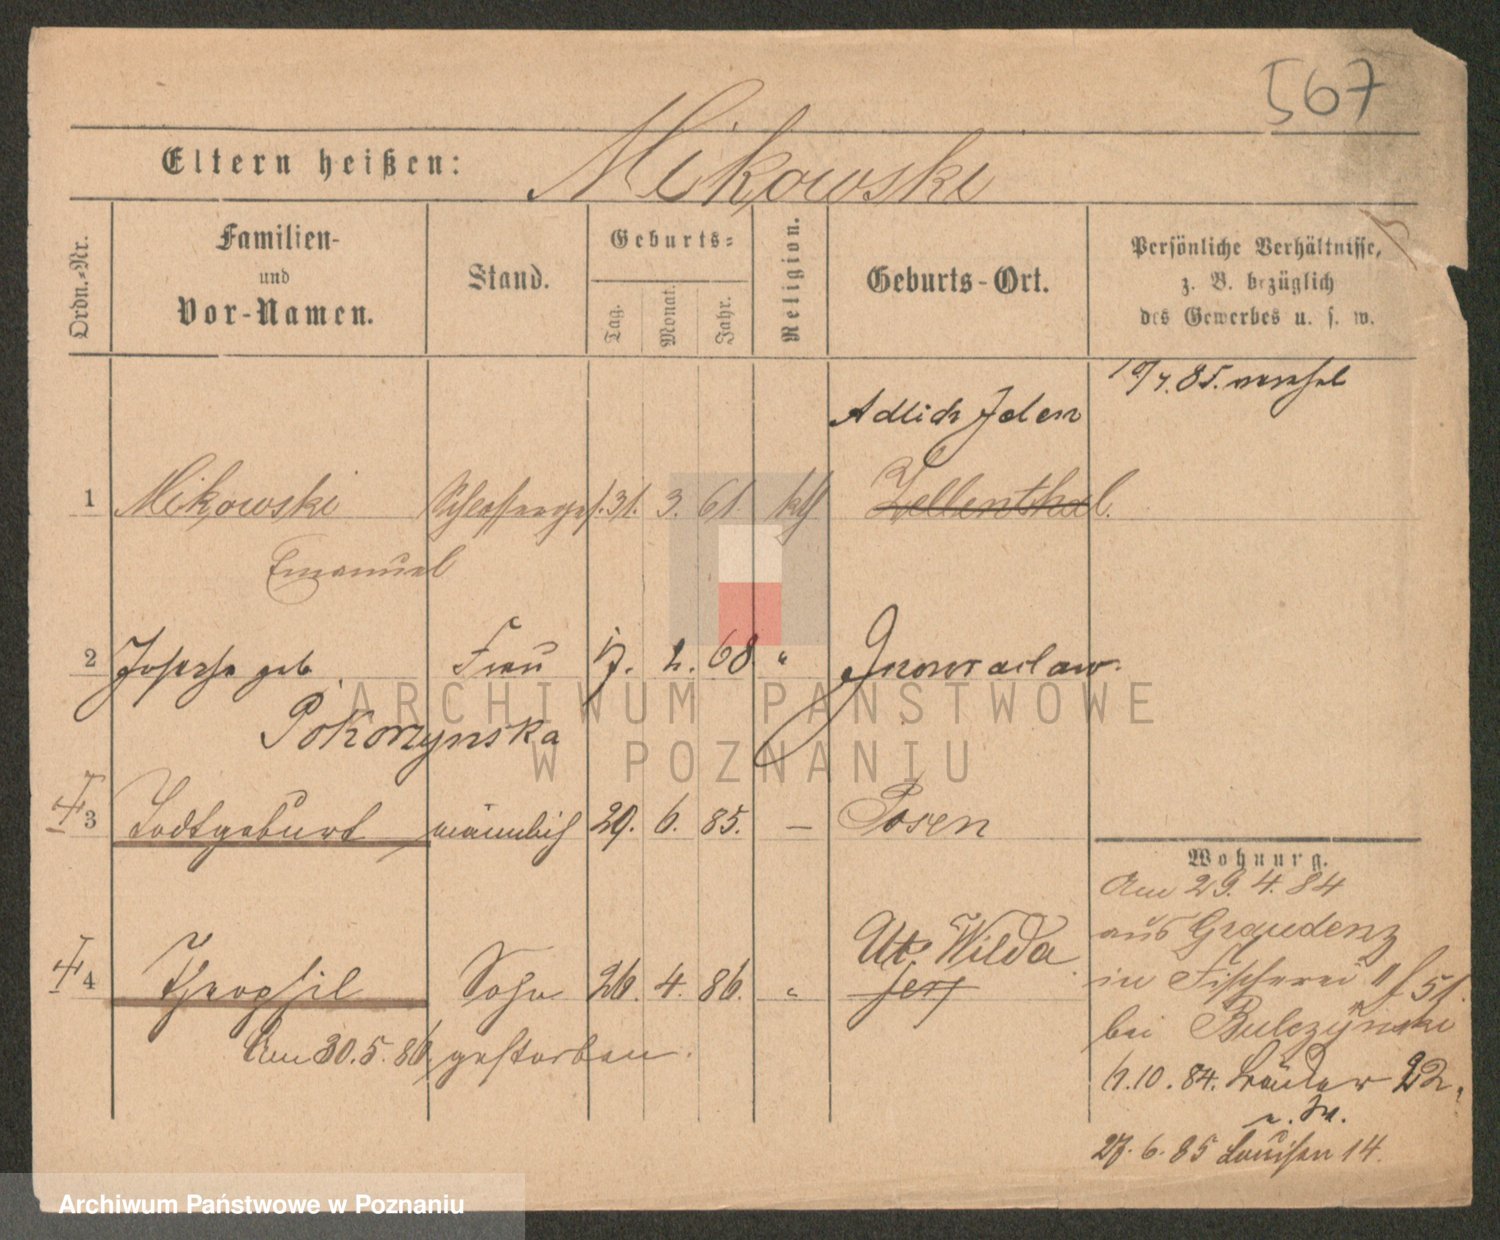 567
Eltern heißen: Mikowski
Ordn.-Nr.
Familien-
und
Vor-Namen.
Stand.
Geburts-
Tag.
Monat.
Jahr.
Religion.
Geburts-Ort.
Persönliche Verhältnisse,
z. B. bezüglich
des Gewerbes u. s. w.
Adlich Jelen
1 Mikowski Schlosserges. 31. 3. 61. kth Zellenthal.
Emanuel
2 Josepha geb. Frau 17. 2. 68 " Inowraclaw.
Pokorzynska
3 Todtgeburt männlich 29. 6. 85. — Posen
Wohnung.
Am 29. 4. 84
aus Graudenz
Wilda
4 Theophil Sohn 26. 4. 86. "
in Fischerei 51.
bei Bulczynski
Am 30. 5. 86 gestorben.
10. 84.
6. 85 Louisen 14.
ARCHIWUM PAŃSTWOWE
W POZNANIU
Archiwum Państwowe w Poznaniu